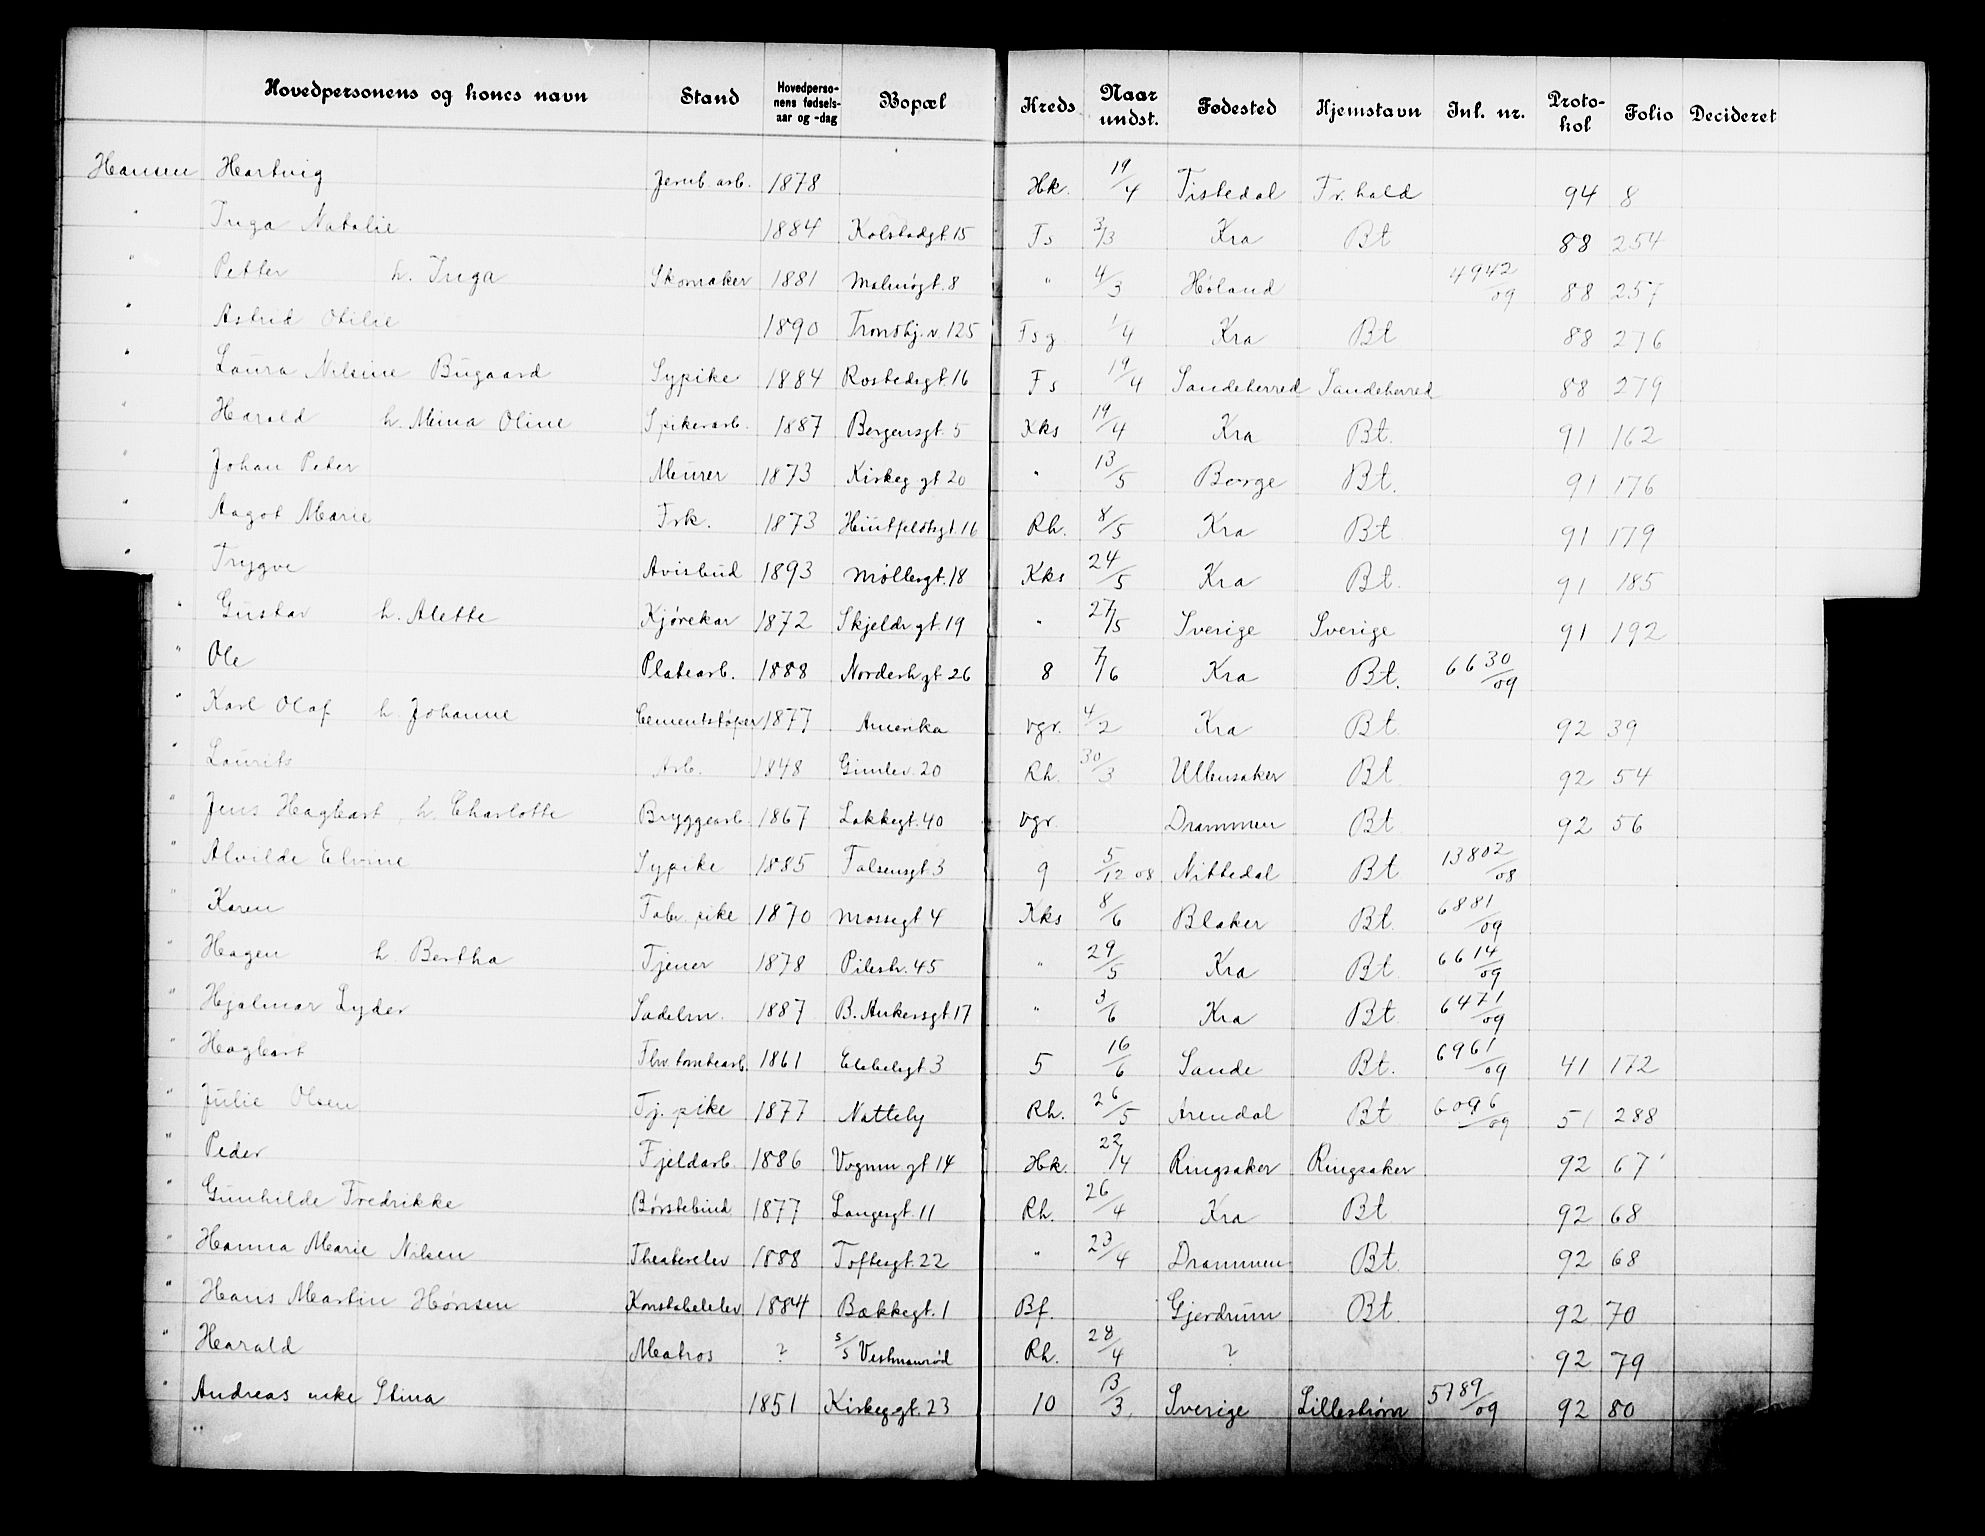 Hovedpersonens og kones navn Stand Hovedpersonens fødselsaar og -dag Bopæl Kreds Naar undst. Fødested Hjemstavn Inl. nr. Protokol Folio Decideret
Hansen Hartvig Jernb. arb. 1878 Hk. 19/4 Tistedal Fr.hald 94 8
" Inga Natalie 1884 Kolstadgt. 15 Fs 3/3 Kra Bt 88 254
" Petter h. Inga Skomaker 1881 Malmøgt. 8 " 4/3 Høland 4942/09 88 257
" Astrid Otilie 1890 Tronthj. v. 125 Fsg 1/4 Kra Bt 88 276
" Laura Nilsine Bugaard Sypike 1884 Rostedsgt. 16 Fs 19/4 Sandeherred Sandeherred 88 279
" Harald h. Mina Oline Spikerarb. 1887 Bergensgt. 5 Kks 19/4 Kra Bt. 91 162
" Johan Peter Murer 1873 Kirkeg gt 20 " 13/5 Borge Bt. 91 176
" Aagot Marie Frk. 1873 Huitfeldtsgt. 16 Rh. 8/5 Kra Bt 91 179
" Trygve Avisbud 1893 Møllergt. 18 Kks 24/5 Kra Bt. 91 185
" Gustav h. Alette Kjørekar 1872 Skjeldr gt. 19 " 27/5 Sverige Sverige 91 192
" Ole Platearb. 1888 Norderh gt. 26 8 7/6 Kra Bt. 6630/09
" Karl Olaf h. Johanne Cementstøper 1877 Amerika Vgr. 4/2 Kra Bt. 92 39
" Laurits Arb. 1848 Gimlev. 20 Rh. 30/3 Ullensaker Bt 92 54
" Jens Hagbart h. Charlotte Bryggearb. 1867 Lakkegt. 40 Vgr. Drammen Bt 92 56
" Alvilde Elvine Sypike 1885 Falsensgt. 3 9 5/12 08 Nittedal Bt 13802/08
" Karen Fabr. pike 1870 Mossegt 4 Kks 8/6 Blaker Bt. 6881/09
" Hagen h. Bertha Tjener 1878 Pilestr. 45 " 29/5 Kra Bt 6614/09
" Hjalmar Lyder Sadelm. 1887 B. Ankersgt. 17 " 3/6 Kra Bt 6471/09
" Hagbart 1861 3 5 16/6 Sande Bt. 6961/09 41 172
" Julie Olsen Tj. pike 1877 Nattely Rh. 26/5 Arendal Bt 6096/09 51 288
" Peder Fjeldarb. 1886 Vognm gt 14 Hk. 22/4 Ringsaker Ringsaker 92 67
" Gunhilde Fredrikke Børstebind 1877 Langesgt. 11 Rh. 26/4 Kra Bt 92 68
" Hanna Marie Nilsen Theaterelev 1888 Toftesgt. 22 " 23/4 Drammen Bt. 92 68
" Hans Martin Hønsen Konstabelelev 1884 Bækkegt. 1 Bf. Gjerdrum Bt. 92 70
" Harald Matros ? s/s Rh. 28/4 ? 92 79
" Andreas enke Stina 1851 Kirkeggt. 23 10 13/3. Sverige Lillestrøm 5789/09 92 80
"